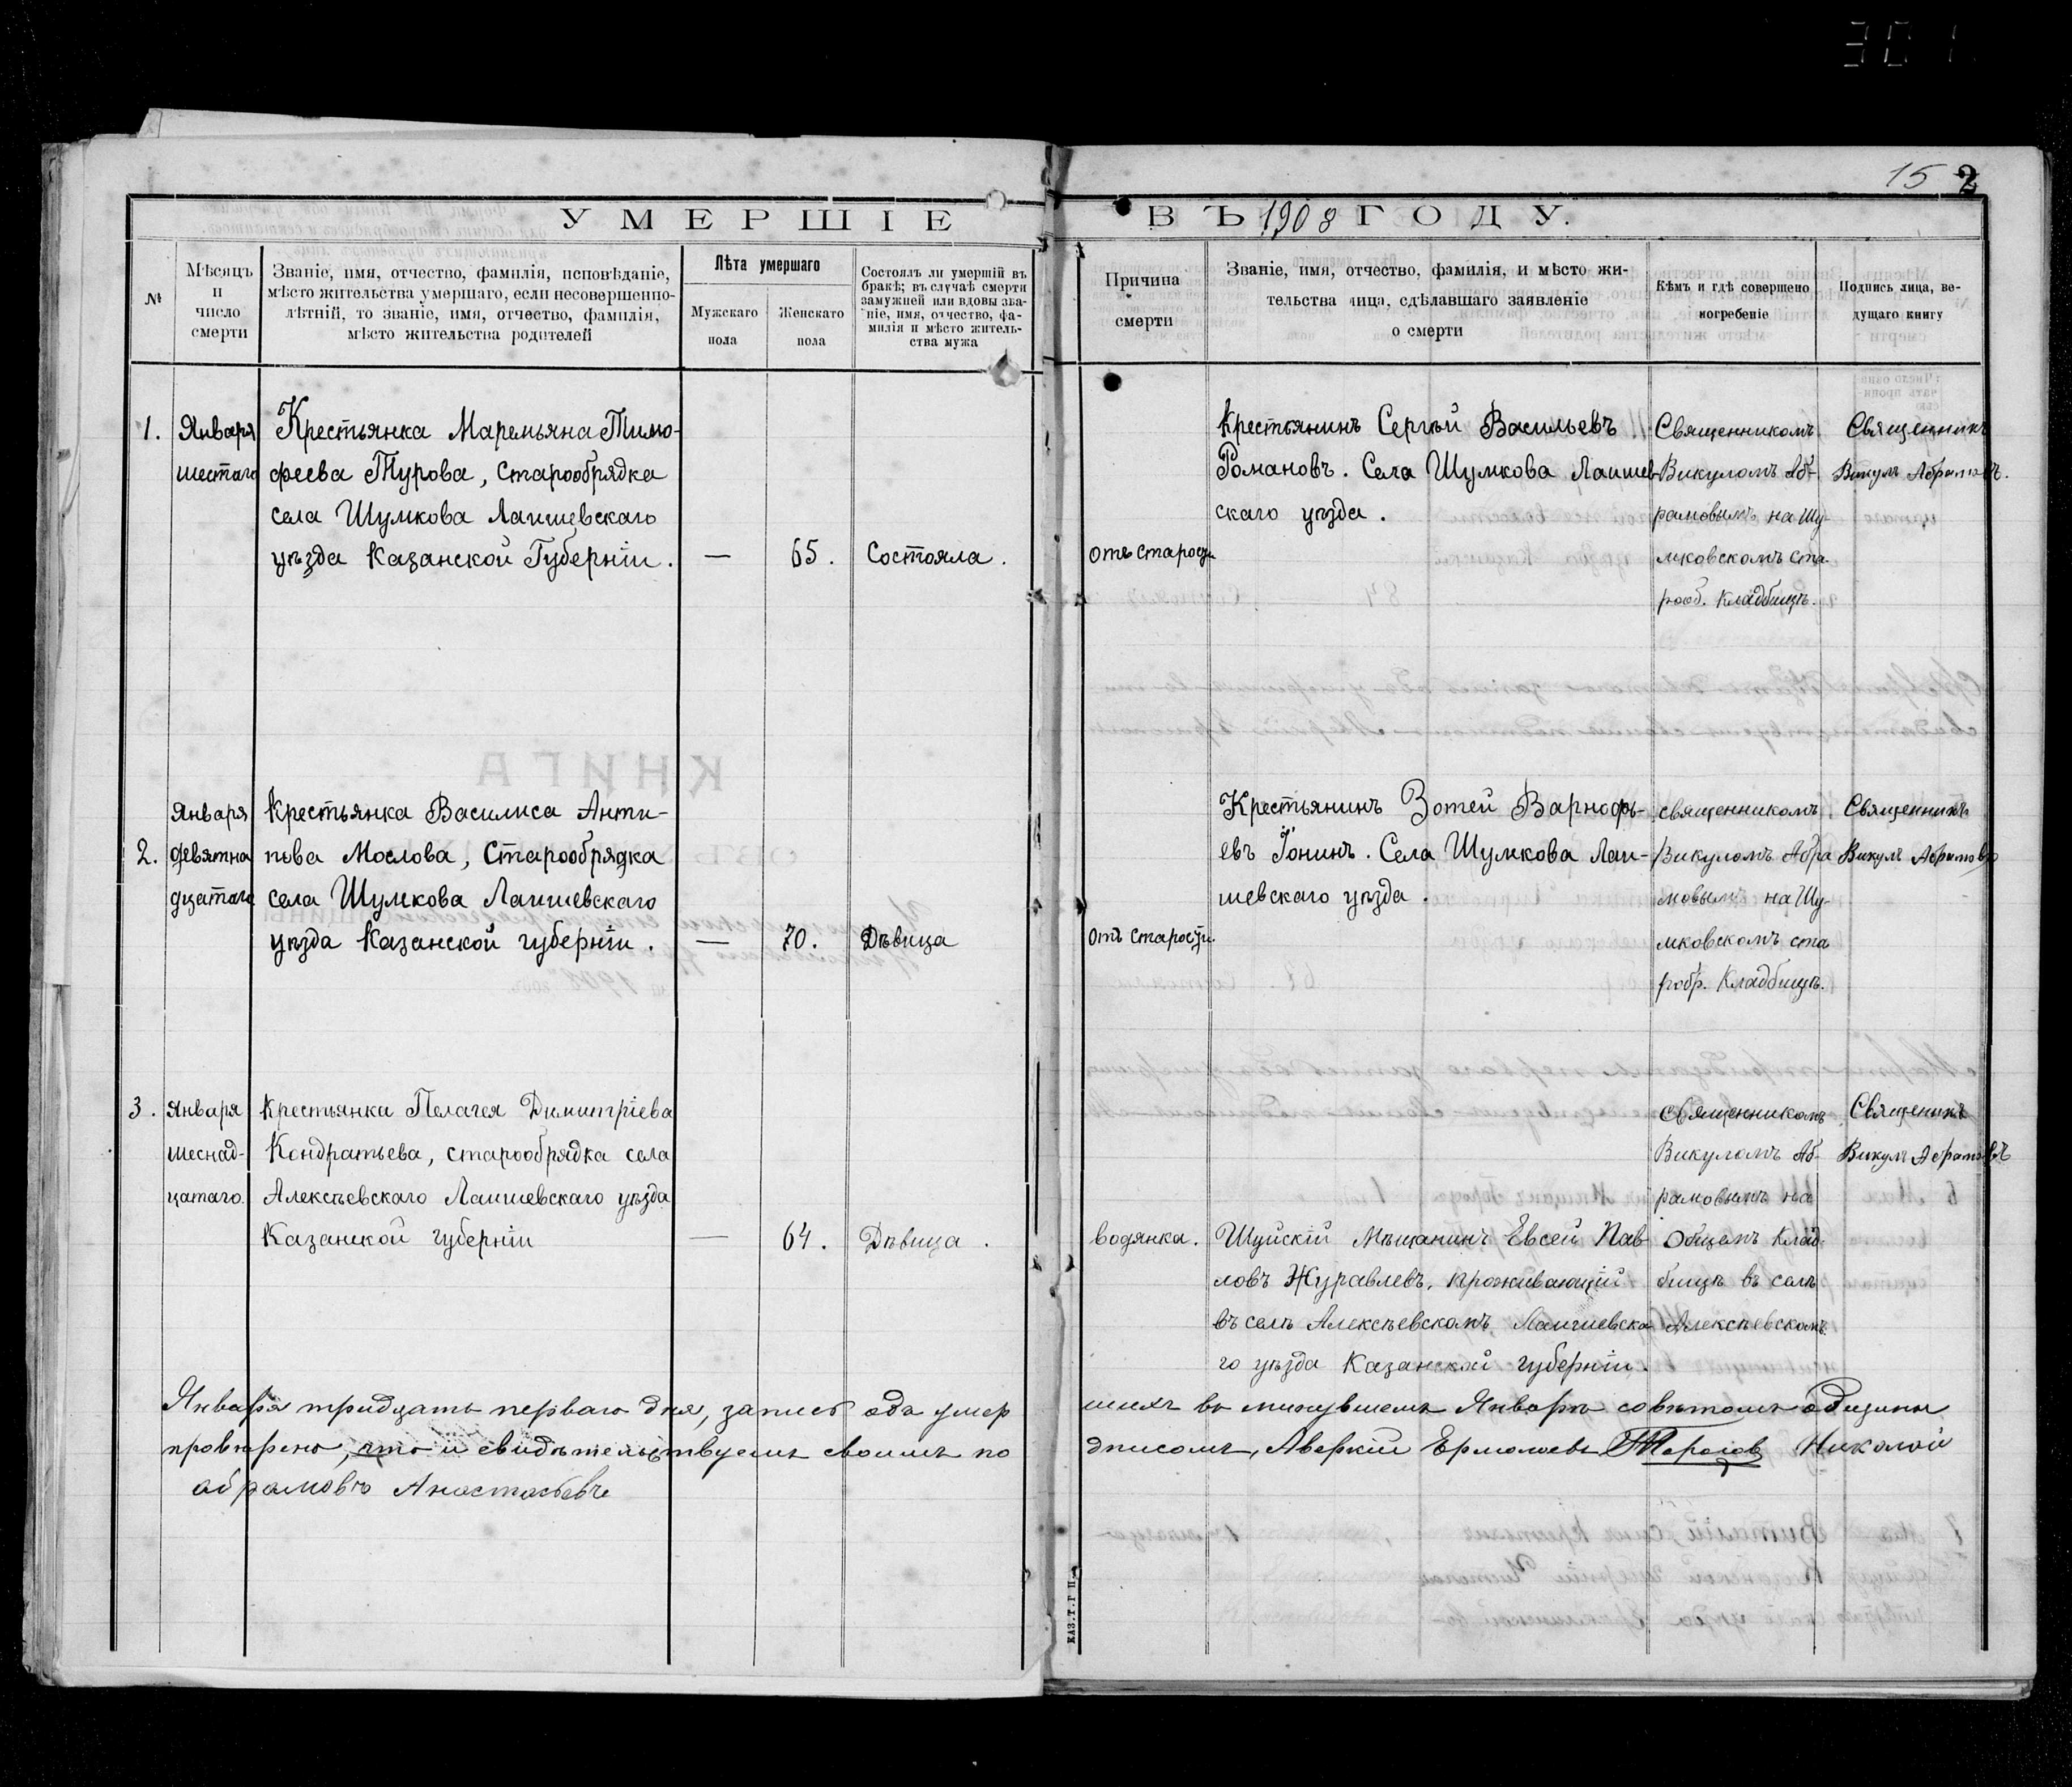 301
15 2
УМЕРШІЕ
ВЪ 1908 ГОДУ.
№
Мѣсяцъ
и
число
смерти
Званіе, имя, отчество, фамилія, исповѣданіе,
мѣсто жительства умершаго, если несовершенно-
лѣтній, то званіе, имя, отчество, фамилія,
мѣсто жительства родителей
Лѣта умершаго
Мужскаго
пола
Женскаго
пола
Состоялъ ли умершій въ
бракѣ; въ случаѣ смерти
замужней или вдовы зва-
ніе, имя, отчество, фа-
милія и мѣсто житель-
ства мужа
Причина
смерти
Званіе, имя, отчество, фамилія, и мѣсто жи-
тельства лица, сдѣлавшаго заявленіе
о смерти
Кѣмъ и гдѣ совершено
погребеніе
Подпись лица, ве-
дущаго книгу
1.
Января
шестаго
Крестьянка Маремьяна Тимо-
феева Турова, Старообрядка
села Шумкова Лаишевскаго
уѣзда Казанской Губерніи.
—
65.
Состояла.
отъ старости
Крестьянинъ Сергѣй Васильевъ
Романовъ. Села Шумкова Лаишев-
скаго уѣзда.
Священникомъ
Викуломъ Аб-
рамовымъ на Шу-
мковскомъ ста-
рооб. кладбищѣ.
Священникъ
Викулъ Абрамовъ.
2.
Января
девятна
дцатаго
Крестьянка Василиса Анти-
пова Маслова, Старообрядка
села Шумкова Лаишевскаго
уѣзда Казанской губерніи.
—
70.
Дѣвица
отъ старости.
Крестьянинъ Зотей Варнофь-
евъ Гонинъ. Села Шумкова Лаи-
шевскаго уѣзда.
священникомъ
Викуломъ Абра
мовымъ на Шу-
мковскомъ ста
робр. Кладбищѣ.
Священникъ
Викулъ Абрамовъ
3.
Января
шеснад-
цатаго.
Крестьянка Пелагея Димитріева
Кондратьева, старообрядка села
Алексѣевскаго Лаишевскаго уѣзда
Казанской губерніи
—
64.
Дѣвица.
водянка.
Шуйскій Мѣщанинъ Евсей Пав-
ловъ Журавлевъ, проживающій
въ селѣ Алексѣевскомъ, Лаишевска
го уѣзда Казанской губерніи.
священникомъ
Викуломъ Аб-
рамовымъ на
Общемъ клад-
бищѣ въ селѣ
Алексѣевскомъ.
Священикъ
Викулъ Абрамовъ
Января тридцать перваго дня, запись объ умер
шихъ въ минувшемъ Январѣ совѣтомъ общины
провѣрено, что и свидѣтельствуемъ своимъ по
дписомъ, Аверкій Ермолаевъ Николай
абрамовъ Анастасьевъ
КАЗ.Т.Г.П.